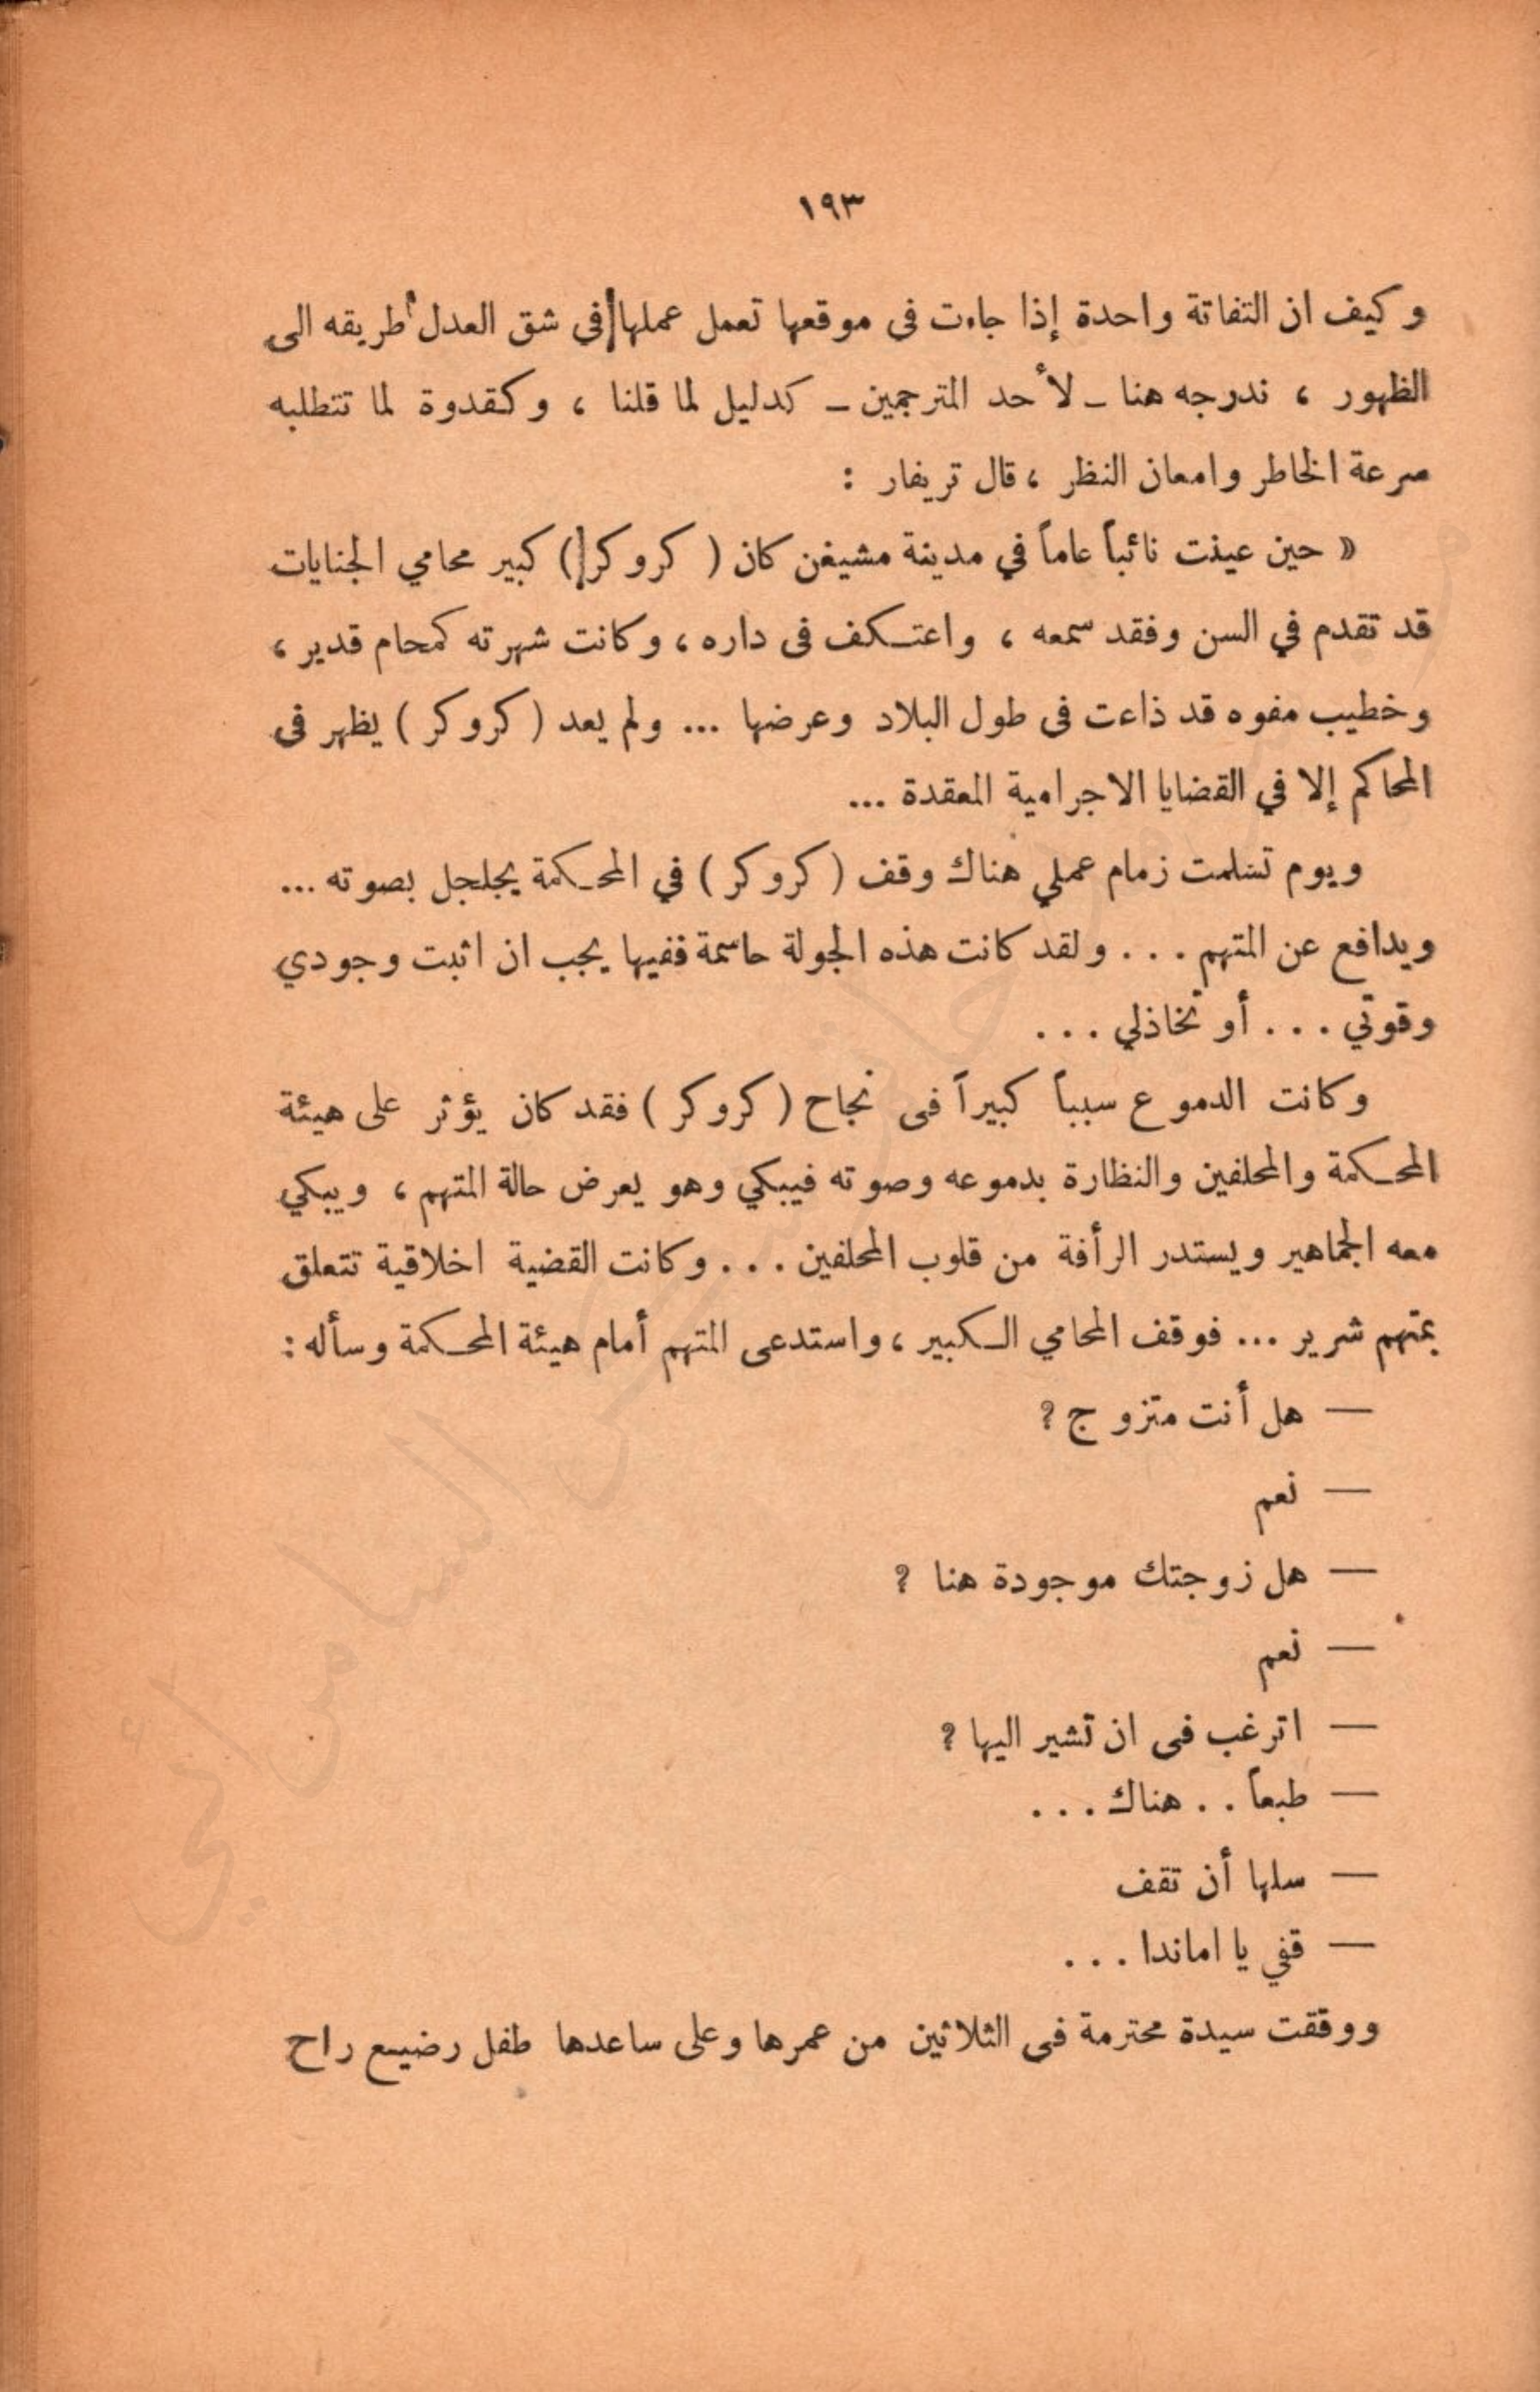 ١٩٣
وكيف ان التفاتة واحدة إذا جاءت في موقعها تعمل عملها في شق العدل طريقه الى
الظهور ، ندرجه هنا ـ لأحد المترجمين ـ كدليل لما قلنا ، وكقدوة لما تتطلبه
سرعة الخاطر وامعان النظر ، قال تريفار :
« حين عينت نائباً عاماً في مدينة مشيغن كان ( كروكر ) كبير محامي الجنايات
قد تقدم في السن وفقد سمعه ، واعتكف في داره ، وكانت شهرته كمحام قدير ،
وخطيب مفوه قد ذاعت في طول البلاد وعرضها ... ولم يعد ( كروكر ) يظهر في
المحاكم إلا في القضايا الاجرامية المعقدة ...
ويوم تسلمت زمام عملي هناك وقف ( كروكر ) في المحكمة يجلجل بصوته ...
ويدافع عن المتهم . . . ولقد كانت هذه الجولة حاسمة ففيها يجب ان اثبت وجودي
وقوتي . . . أو تخاذلي . . .
وكانت الدموع سبباً كبيراً في نجاح ( كروكر ) فقد كان يؤثر على هيئة
المحكمة والمحلفين والنظارة بدموعه وصوته فيبكي وهو يعرض حالة المتهم ، ويبكي
معه الجماهير ويستدر الرأفة من قلوب المحلفين . . . وكانت القضية اخلاقية تتعلق
بمتهم شرير ... فوقف المحامي الكبير ، واستدعى المتهم أمام هيئة المحكمة وسأله :
— هل أنت متزوج ؟
— نعم
— هل زوجتك موجودة هنا ؟
— نعم
— اترغب في ان تشير اليها ؟
— طبعاً . . هناك . . .
— سلها أن تقف
— قفي يا اماندا . . .
ووقفت سيدة محترمة في الثلاثين من عمرها وعلى ساعدها طفل رضيع راح